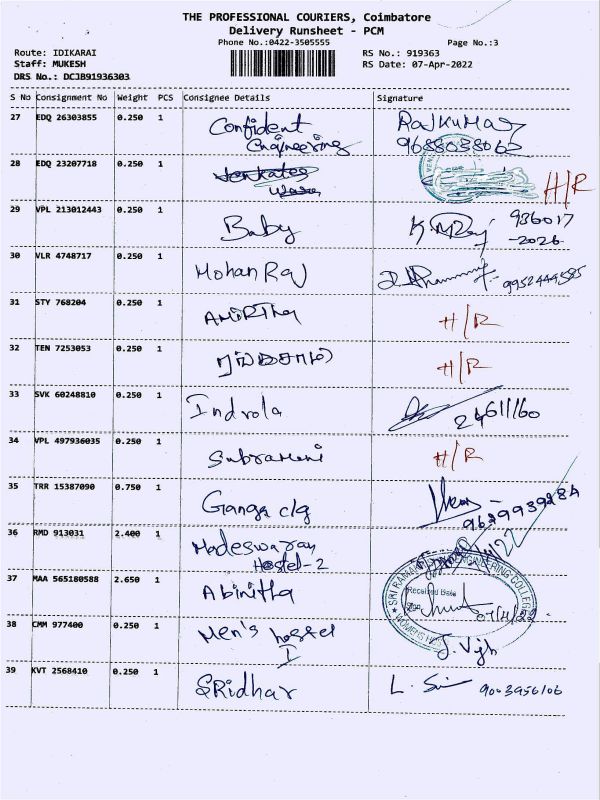 THE PROFESSIONAL COURIERS, Coimbatore
Delivery Runsheet - PCM
Phone No.:0422-3505555
Page No.:3
Route: IDIKARAI
RS No.: 919363
Staff: MUKESH
RS Date: 07-Apr-2022
DRS No.: DCJB91936303
S No Consignment No Weight PCS Consignee Details Signature
27 EDQ 26303855 0.250 1 Confident Engineering RAJKUMAR
9688038063
28 EDQ 23207718 0.250 1 H/R
29 VPL 213012443 0.250 1 Baby 986017
-2026
30 VLR 4748717 0.250 1 Mohan Raj 9952444585
31 STY 768204 0.250 1 AMIRTHA H/R
32 TEN 7253053 0.250 1 H/R
33 SVK 60248810 0.250 1 Indrola
34 VPL 497936035 0.250 1 Subramani H/R
35 TRR 15387090 0.750 1 Ganga clg
36 RMD 913031 2.400 1 Madeswaran
Hostel-2
37 MAA 565180588 2.650 1 Abinitha
SRI RAMA ENGINEERING COLLEGE
Received Date
38 CMM 977400 0.250 1 Men's hostel
I
J. Vijh
39 KVT 2568410 0.250 1 SRidhar 9003956106